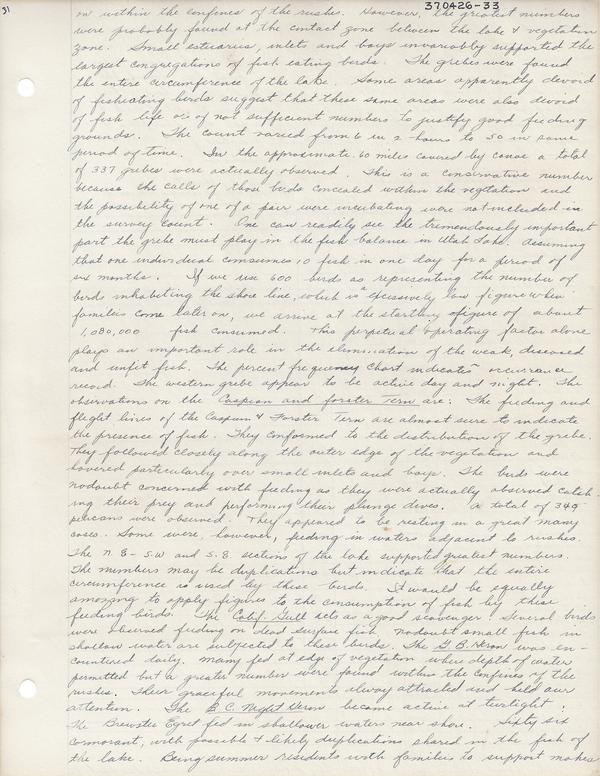 31
370426-33
on within the confines of the rushes. However, the greatest numbers
were probably found at the contact zone between the lake & vegetation
zone. Small estuaries, inlets and bays invariably supported the
largest congregations of fish eating birds. The grebes were found
the entire circumference of the lake. Some areas apparently devoid
of fisheating birds suggest that these same areas were also devoid
of fish life or of not sufficient numbers to justify good feeding
grounds. The count varied from 6 in 2 hours to 50 in same
period of time. In the approximate 60 miles covered by canoe a total
of 337 grebes were actually observed. This is a conservative number
because the calls of those birds concealed within the vegetation and
the possibility of one of a pair were incubating were not included in
the survey count. One can readily see the tremendously important
part the grebe must play in the fish balance in Utah Lake. Assuming
that one individual consumes 10 fish in one day for a period of
six months. If we use 600 birds as representing the number of
birds inhabiting the shore line, which is excessively low figure when
families come later on, we arrive at the startling figure of about
1,080,000 fish consumed. This perpetual operating factor alone
plays an important role in the elimination of the weak, diseased
and unfit fish. The percent frequency chart indicates occurrance
record. The western grebe appear to be active day and night. The
observations on the Caspian and forster Tern are: The feeding and
flight lines of the Caspian & Forster Tern are almost sure to indicate
the presence of fish. They conformed to the distribution of the grebe.
They followed closely along the outer edge of the vegetation and
hovered particularly over small inlets and bays. The birds were
nodoubt concerned with feeding as they were actually observed catch-
ing their prey and performing their plunge dives. A total of 349
pelicans were observed. They appeared to be resting in a great many
cases. Some were, however, feeding in waters adjacent to rushes.
The N.E - S.W and S.E sections of the lake supported greatest numbers.
The numbers may be duplications but indicate that the entire
circumference is used by these birds. It would be equally
amazing to apply figures to the consumption of fish by these
feeding birds. The Calif. Gull acts as a good scavenger. Several birds
were observed feeding on dead surface fish. nodoubt small fish in
shallow water are subjected to these birds. The G. B. Heron was en-
countered daily. many fed at edge of vegetation where depth of water
permitted but a greater number were found within the confines of the
rushes. Their graceful movements always attracted and held our
attention. The B. C. Night Heron became active at twilight.
The Brewster Egret fed in shallower waters near shore. Sixty six
cormorant, with possible & likely duplications shared in the fish of
the lake. Being summer residents with families to support makes